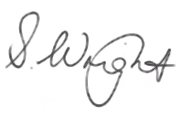 S. Wright